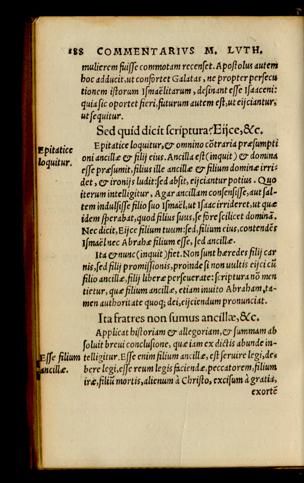 188 COMMENTARIVS M. LVTH.
mulierem fuisse commotam recenset. Apostolus autem
hoc adducit, ut confortet Galatas, ne propter persecu
tionem istorum Ismaëlitarum, desinant esse Isaaceni:
quia sic oportet fieri, futurum autem est, ut eijciantur,
ut sequitur.
Sed quid dicit scriptura? Eijce, &c.
Epitatice
loquitur.
Epitatice loquitur, & omnino cōtraria præsumpti
oni ancillæ & filij eius. Ancilla est (inquit) & domina
esse præsumit, filius ille ancillæ & filium dominæ irri
det, & ironijs ludit: sed absit, eijciantur potius. Quo
iterum intelligitur, Agar ancillam consensisse, aut sal-
tem indulsisse filio suo Ismaël, ut Isaac irrideret, ut quæ
idem sperabat, quod filius suus, se fore scilicet dominā.
Nec dicit, Eijce filium tuum: sed, filium eius, contendēs
Ismaël nec Abrahæ filium esse, sed ancillæ.
Ita & nunc (inquit) fiet. Non sunt hæredes filij car
nis, sed filij promissionis, proinde si non uultis eijci cū
filio ancillæ, filij liberæ perseuerate: scriptura nō men
tietur, quæ filium ancillæ, etiam inuito Abraham, ta-
men authoritate quoq; dei, eijciendum pronunciat.
Ita fratres non sumus ancillæ, &c.
Applicat historiam & allegoriam, & summam ab
soluit breui conclusione, quæ iam ex dictis abunde in-
Esse filium
ancillæ.
telligitur. Esse enim filium ancillæ, est seruire legi, de-
bere legi, esse reum legis faciendæ, peccatorem, filium
iræ, filiū mortis, alienum à Christo, excisum à gratia,
exortē